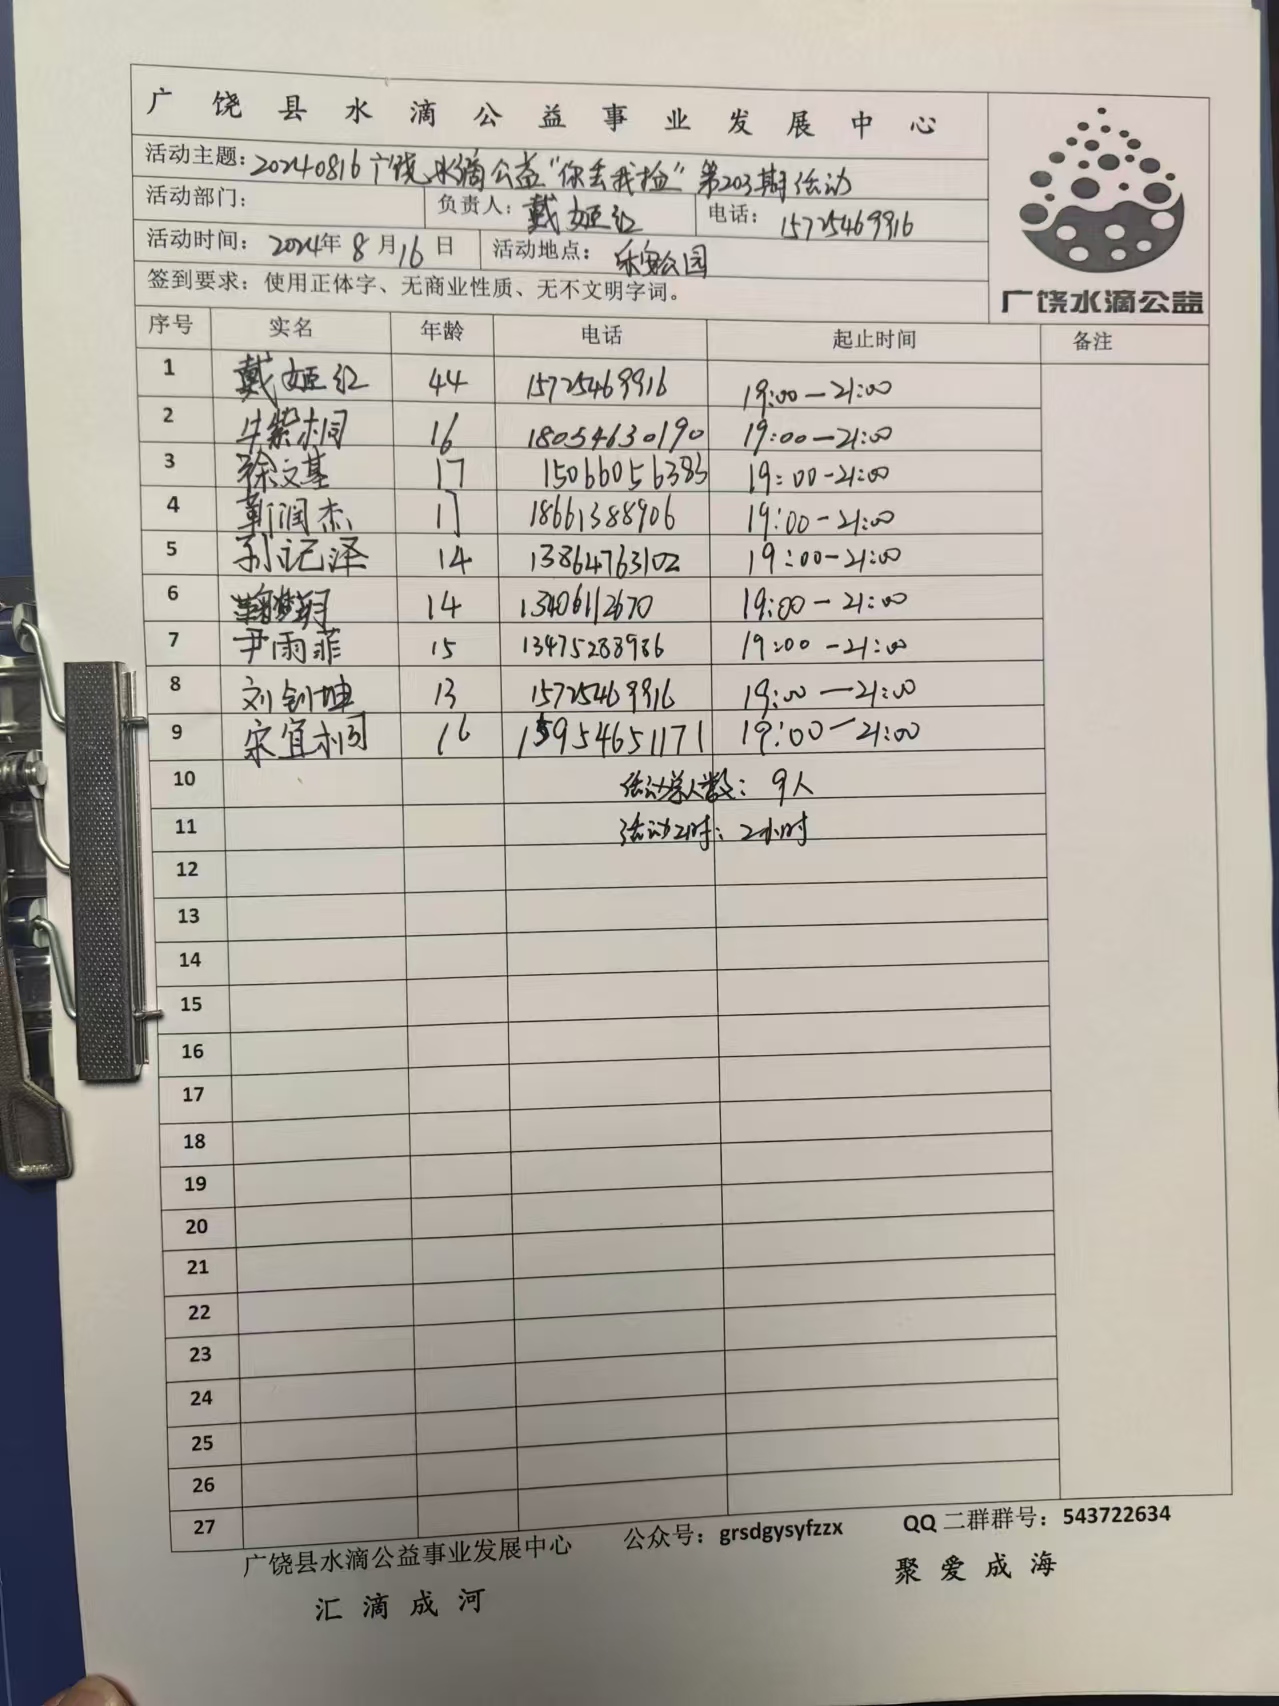 广饶县水滴公益事业发展中心
活动主题：20240816广饶水滴公益“你丢我捡”第203期活动
活动部门： 负责人：戴姬红 电话：15725469916
活动时间：2024年8月16日 活动地点：乐安公园
签到要求：使用正体字、无商业性质、无不文明字词。
广饶水滴公益
序号 实名 年龄 电话 起止时间 备注
1 戴姬红 44 15725469916 19:00—21:00
2 牛紫桐 16 18054630190 19:00—21:00
3 徐文基 17 15066056383 19:00-21:00
4 靳润杰 17 18661388906 19:00-21:00
5 孙记泽 14 13864763102 19:00-21:00
6 14 13406112670 19:00-21:00
7 尹雨菲 15 13475288986 19:00-21:00
8 刘钊坤 13 15725469916 19:00—21:00
9 宋宜桐 16 15954651171 19:00—21:00
10 活动总人数：9人
11 活动工时：2小时
12
13
14
15
16
17
18
19
20
21
22
23
24
25
26
27
广饶县水滴公益事业发展中心 公众号：grsdgysyfzzx QQ二群群号：543722634
汇滴成河 聚爱成海